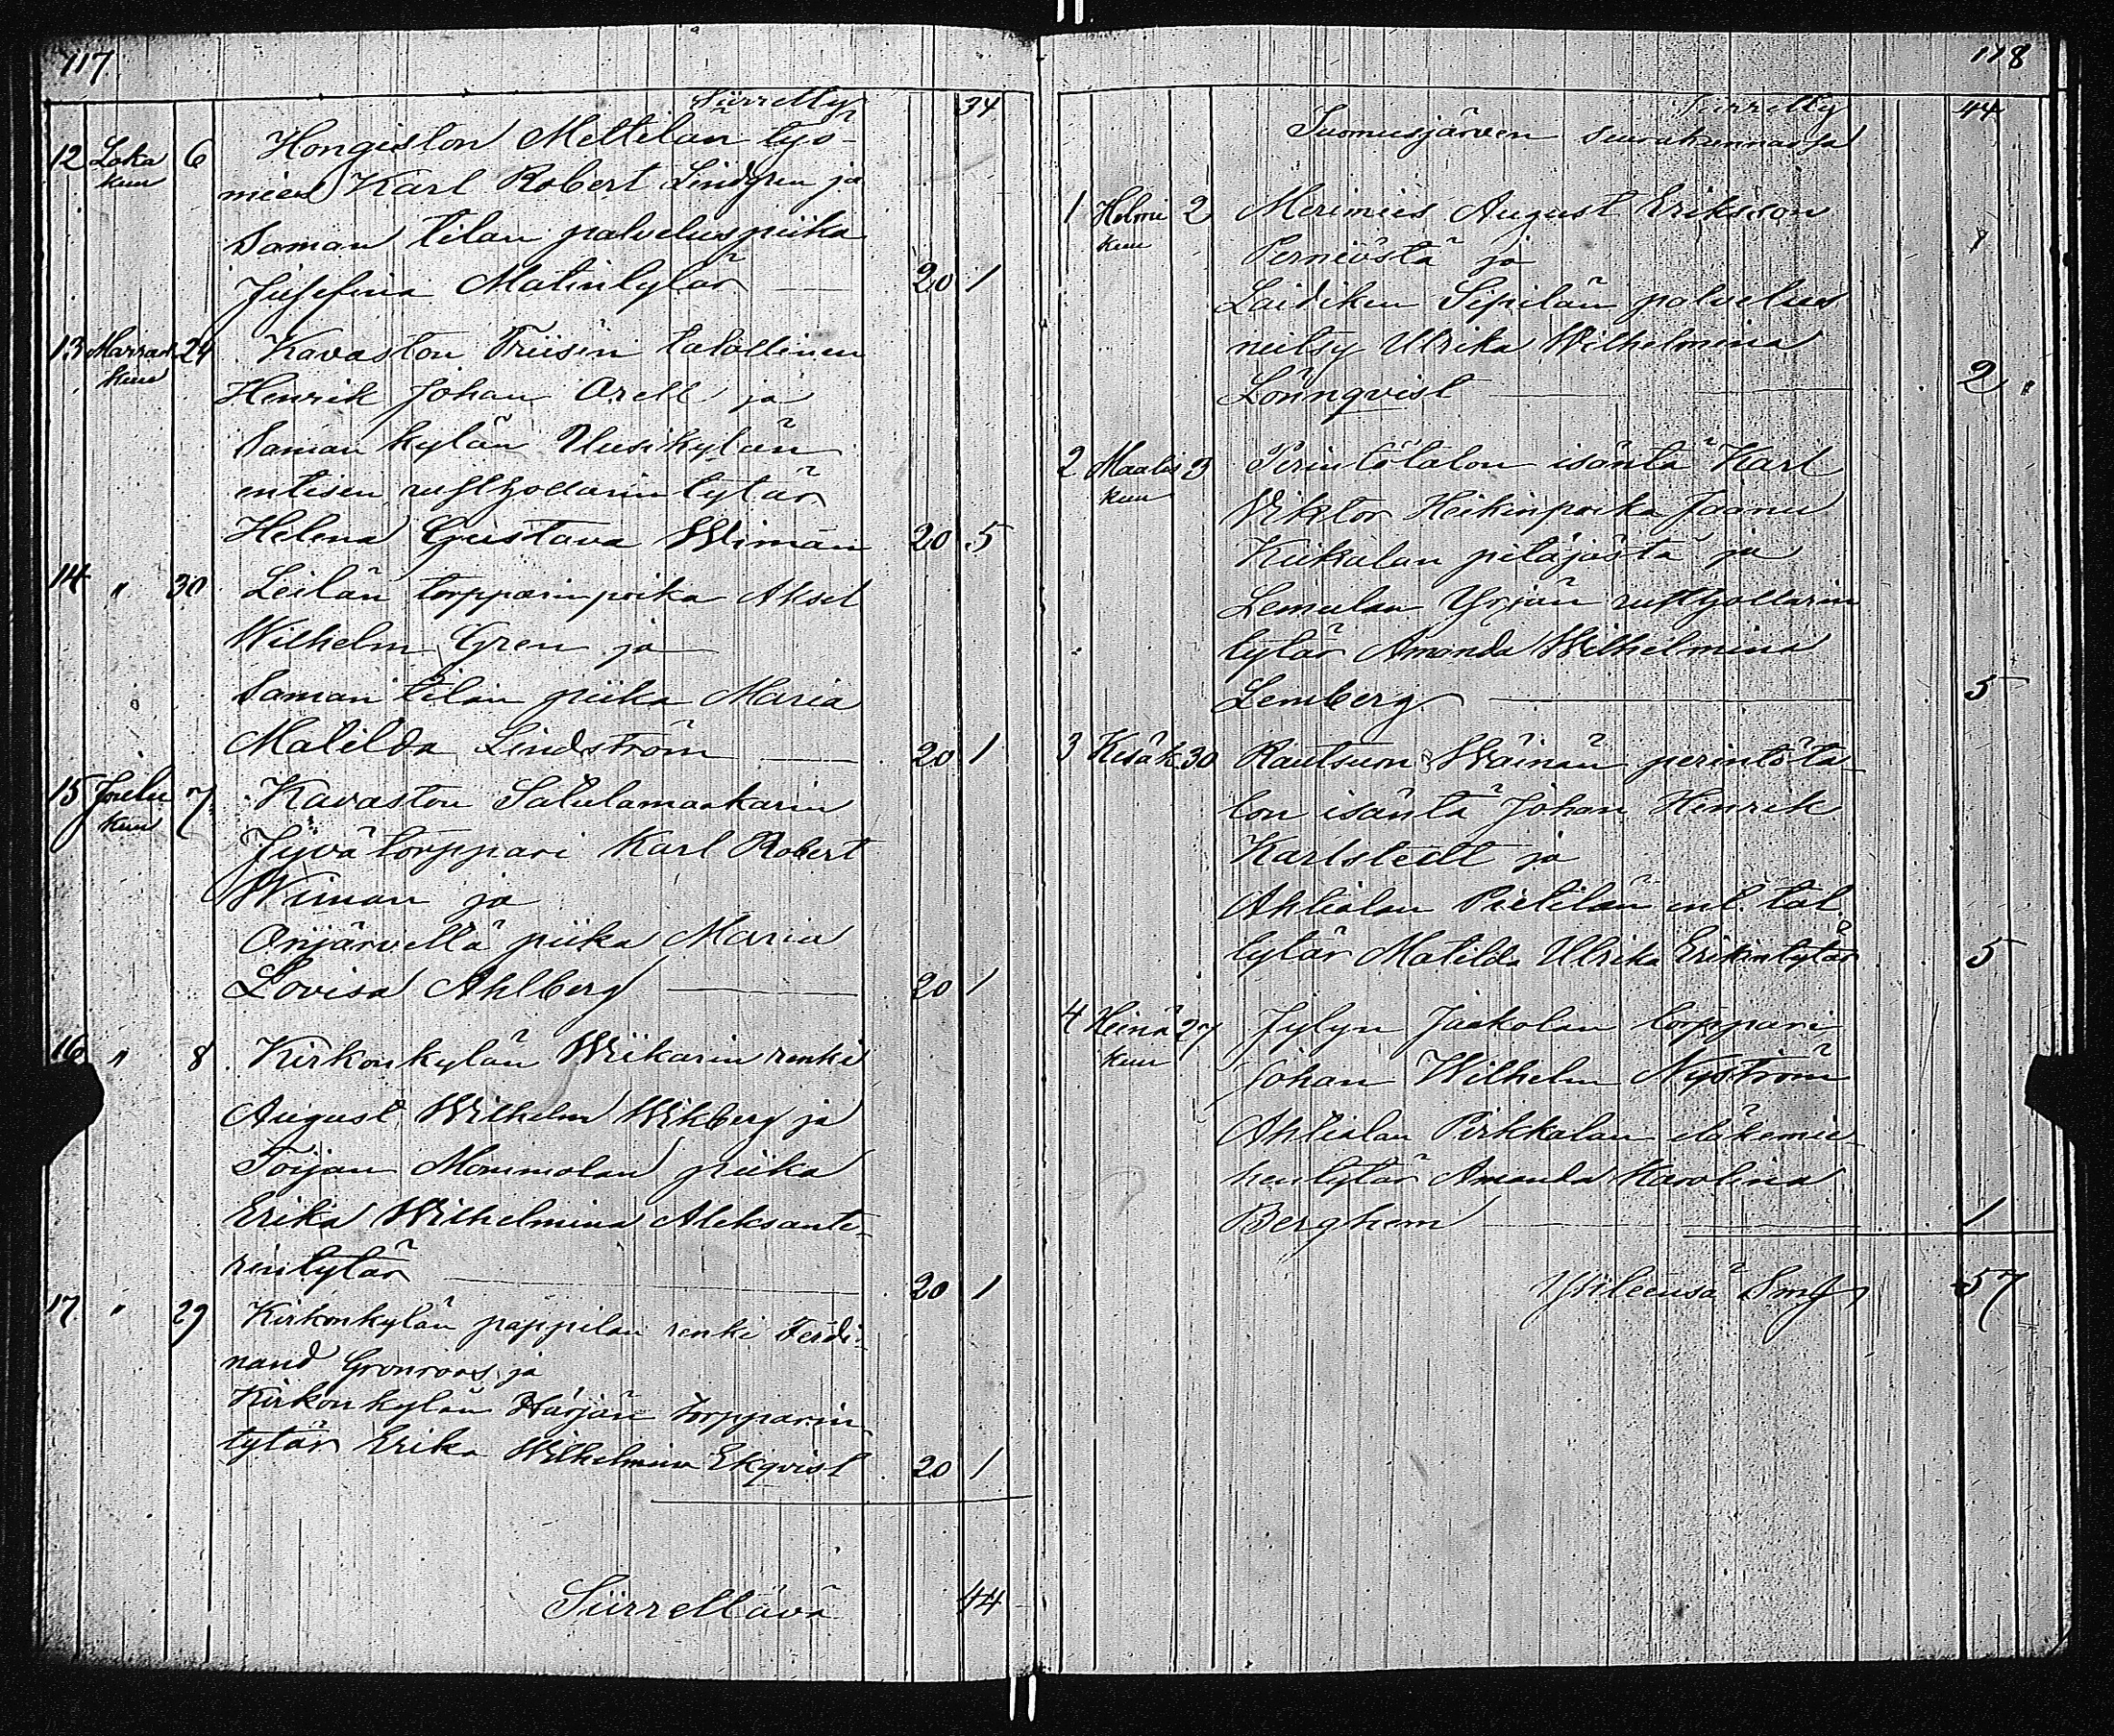 117
Siirretty 34
12 Loka 6 Hongiston Mettilän työ-
kuu
mies Karl Robert Lindgren ja
Saman tilan palveluspiika
Josefina Matintytär 20 1
13 Marras 24 Kavaston Friisin talollinen
kuu
Henrik Johan Orell ja
Saman kylän Uusikylän
entisen rusthollarin tytär
Helena Gustava Wiman 20 5
14 " 30 Leilän torpparinpoika Aksel
Wilhelm Gren ja
Saman tilan piika Maria
Matilda Lindström 20 1
15 Joulu 7 Kavaston Satulamaakarin
kuu
Jyvä torppari Karl Robert
Wiman ja
Orijärveltä piika Maria
Lovisa Ahlberg 20 1
16 " 8 Kirkonkylän Wiikarin renki
August Wilhelm Wikberg ja
Toijan Mommolan piika
Erika Wilhelmina Aleksante-
rintytär 20 1
17 " 29 Kirkonkylän pappilan renki Ferdi-
nand Gronroos ja
Kirkonkylän Härjän torpparin
tytär Erika Wilhelmina Ekqvist 20 1
Siirrettävä 44
118
Siirretty 44
Suomusjärven seurakunnassa
1 Helmi 2 Merimies August Eriksson
kuu
Perniöstä ja
Laidiken Sipilän palvelus
neitsy Ulrika Wilhelmina
Lönnqvist 2 "
2 Maalis 3 Perintötalon isäntä Karl
kuu
Viktor Heikinpoika Jaanu
Kiikalan pitäjästä ja
Lemulan Yrjän rusthollarin
tytär Amanda Wilhelmina
Lemberg 5
3 Kesäk 30 Rautsuon Wäinän perintöta-
lon isäntä Johan Henrik
Karlstedt ja
Ahtialan Pietilän ent. tal.
tytär Matilda Ulrika Erikintytär 5
4 Heinä 27 Jylyn Jaakolan torppari
kuu
Johan Wilhelm Nyström
Ahtialan Pirkkalan eläkemie-
hentytär Amanda Karolina
Berghem 1
Yhteensä Smf 57